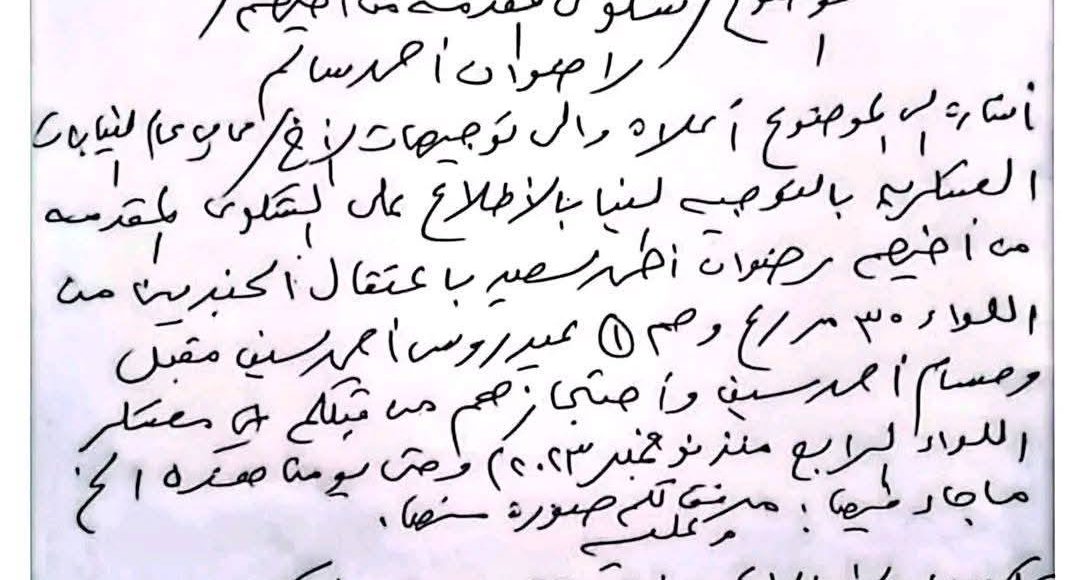 الموضوع / شكوى مقدمه من أخيهم /
رضوان أحمد سالم
أشارة الى الموضوع أعلاه والى توجيهات الأخ / محامي عام النيابات
العسكريه بالتوجيه لنيابا بالأطلاع على الشكوى المقدمه
من أخيهم رضوان أظهر سعيد باعتقال الجنديين من
اللواء ٣٠ مدرع وهم ① عيدروس أحمد سيف مقبل
وحسام أحمد سيف وأحتجازهم من قبلكم في معسكر
اللواء الرابع منذ نوفمبر ٢٠٢٣م وحتى يومنا هذه الخ
ماجاء فيها : مرفق لكم صورة منها .
وعليه